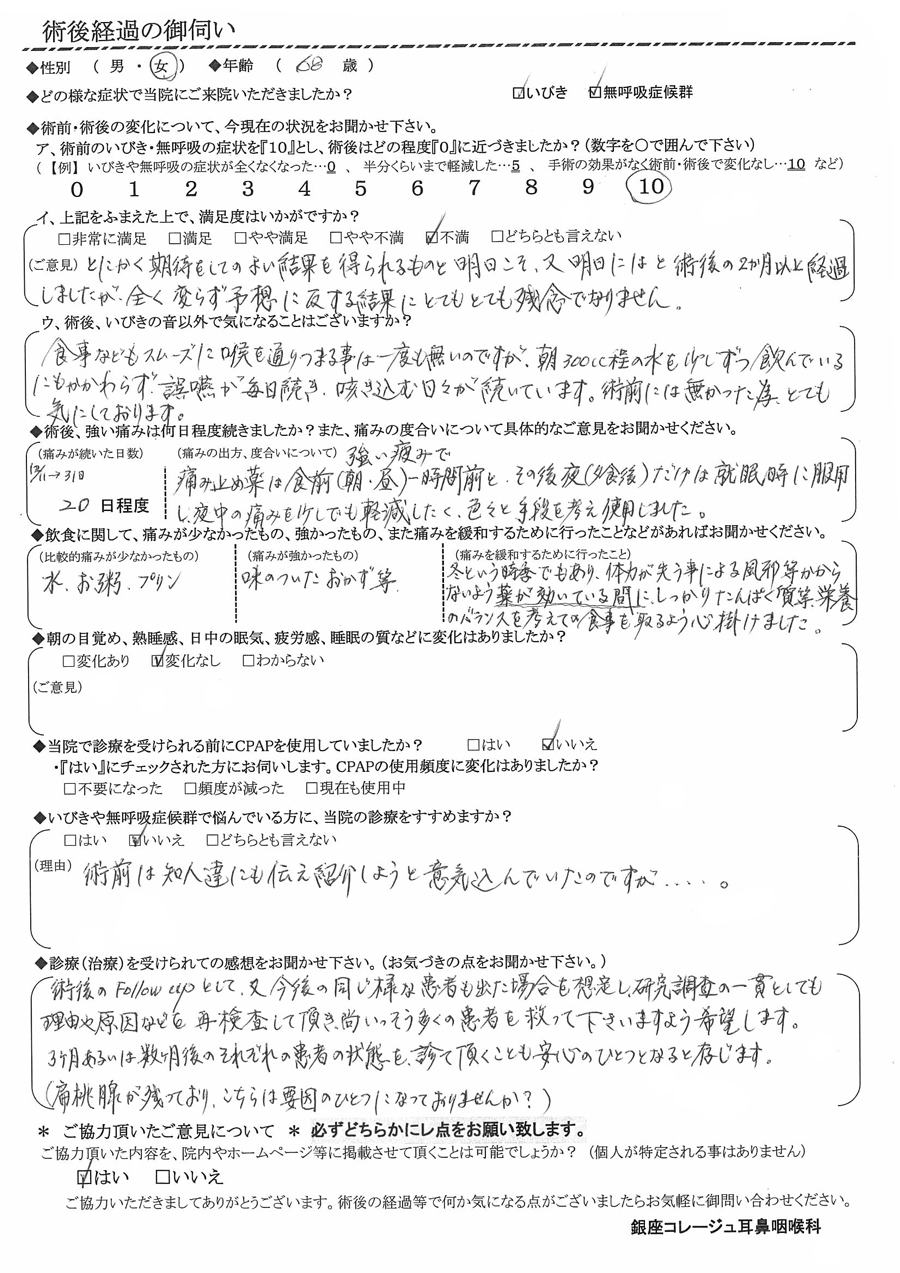 術後経過の御伺い
◆性別 ( 男 ・ 女 ) ◆年齢 ( 68 歳 )
◆どの様な症状で当院にご来院いただきましたか? ☑いびき ☑無呼吸症候群
◆術前・術後の変化について、今現在の状況をお聞かせ下さい。
ア、術前のいびき・無呼吸の症状を『10』とし、術後はどの程度『0』に近づきましたか?(数字を○で囲んで下さい)
(【例】いびきや無呼吸の症状が全くなくなった…0 、 半分くらいまで軽減した…5 、 手術の効果がなく術前・術後で変化なし…10 など)
0 1 2 3 4 5 6 7 8 9 10
イ、上記をふまえた上で、満足度はいかがですか?
□非常に満足 □満足 □やや満足 □やや不満 ☑不満 □どちらとも言えない
(ご意見) とにかく期待をしてのよい結果を得られるものと明日こそ、又明日にはと術後の2か月以上経過
しましたが、全く変らず予想に反する結果にとてもとても残念でなりません。
ウ、術後、いびきの音以外で気になることはございますか?
食事などもスムーズに喉を通りつまる事は一度も無いのですが、朝300cc程の水を少しずつ飲んでいる
にもかかわらず、誤嚥が毎日続き、咳き込む日々が続いています。術前には無かった為、とても
気にしております。
◆術後、強い痛みは何日程度続きましたか?また、痛みの度合いについて具体的なご意見をお聞かせください。
(痛みが続いた日数) (痛みの出方、度合いについて) 強い痛みで
12/11→31日 痛み止め薬は食前(朝・昼)一時間前と、その後夜(夕食後)だけは就眠時に服用
20 日程度 し、夜中の痛みを少しでも軽減したく、色々と手段を考え使用しました。
◆飲食に関して、痛みが少なかったもの、強かったもの、また痛みを緩和するために行ったことなどがあればお聞かせください。
(比較的痛みが少なかったもの) (痛みが強かったもの) (痛みを緩和するために行ったこと)
水、お粥、プリン 味のついたおかず等 冬という時季でもあり、体力が失う事による風邪等かから
ないよう薬が効いている間に、しっかりたんぱく質等、栄養
のバランスを考えての食事を取るよう心掛けました。
◆朝の目覚め、熟睡感、日中の眠気、疲労感、睡眠の質などに変化はありましたか?
□変化あり ☑変化なし □わからない
(ご意見)
◆当院で診療を受けられる前にCPAPを使用していましたか? □はい ☑いいえ
・『はい』にチェックされた方にお伺いします。CPAPの使用頻度に変化はありましたか?
□不要になった □頻度が減った □現在も使用中
◆いびきや無呼吸症候群で悩んでいる方に、当院の診療をすすめますか?
□はい ☑いいえ □どちらとも言えない
(理由) 術前は知人達にも伝え紹介しようと意気込んでいたのですが.....。
◆診療(治療)を受けられての感想をお聞かせ下さい。(お気づきの点をお聞かせ下さい。)
術後のFollow upとして、又今後の同じ様な患者も出た場合を想定し、研究調査の一貫としても
理由や原因などを再検査して頂き、尚いっそう多くの患者を救って下さいますよう希望します。
3ヶ月あるいは数ヶ月後のそれぞれの患者の状態を、診て頂くことも安心のひとつとなると存じます。
(扁桃腺が残っており、こちらは要因のひとつになっておりませんか?)
* ご協力頂いたご意見について * 必ずどちらかにレ点をお願い致します。
ご協力頂いた内容を、院内やホームページ等に掲載させて頂くことは可能でしょうか? (個人が特定される事はありません)
☑はい □いいえ
ご協力いただきましてありがとうございます。術後の経過等で何か気になる点がございましたらお気軽に御問い合わせください。
銀座コレージュ耳鼻咽喉科